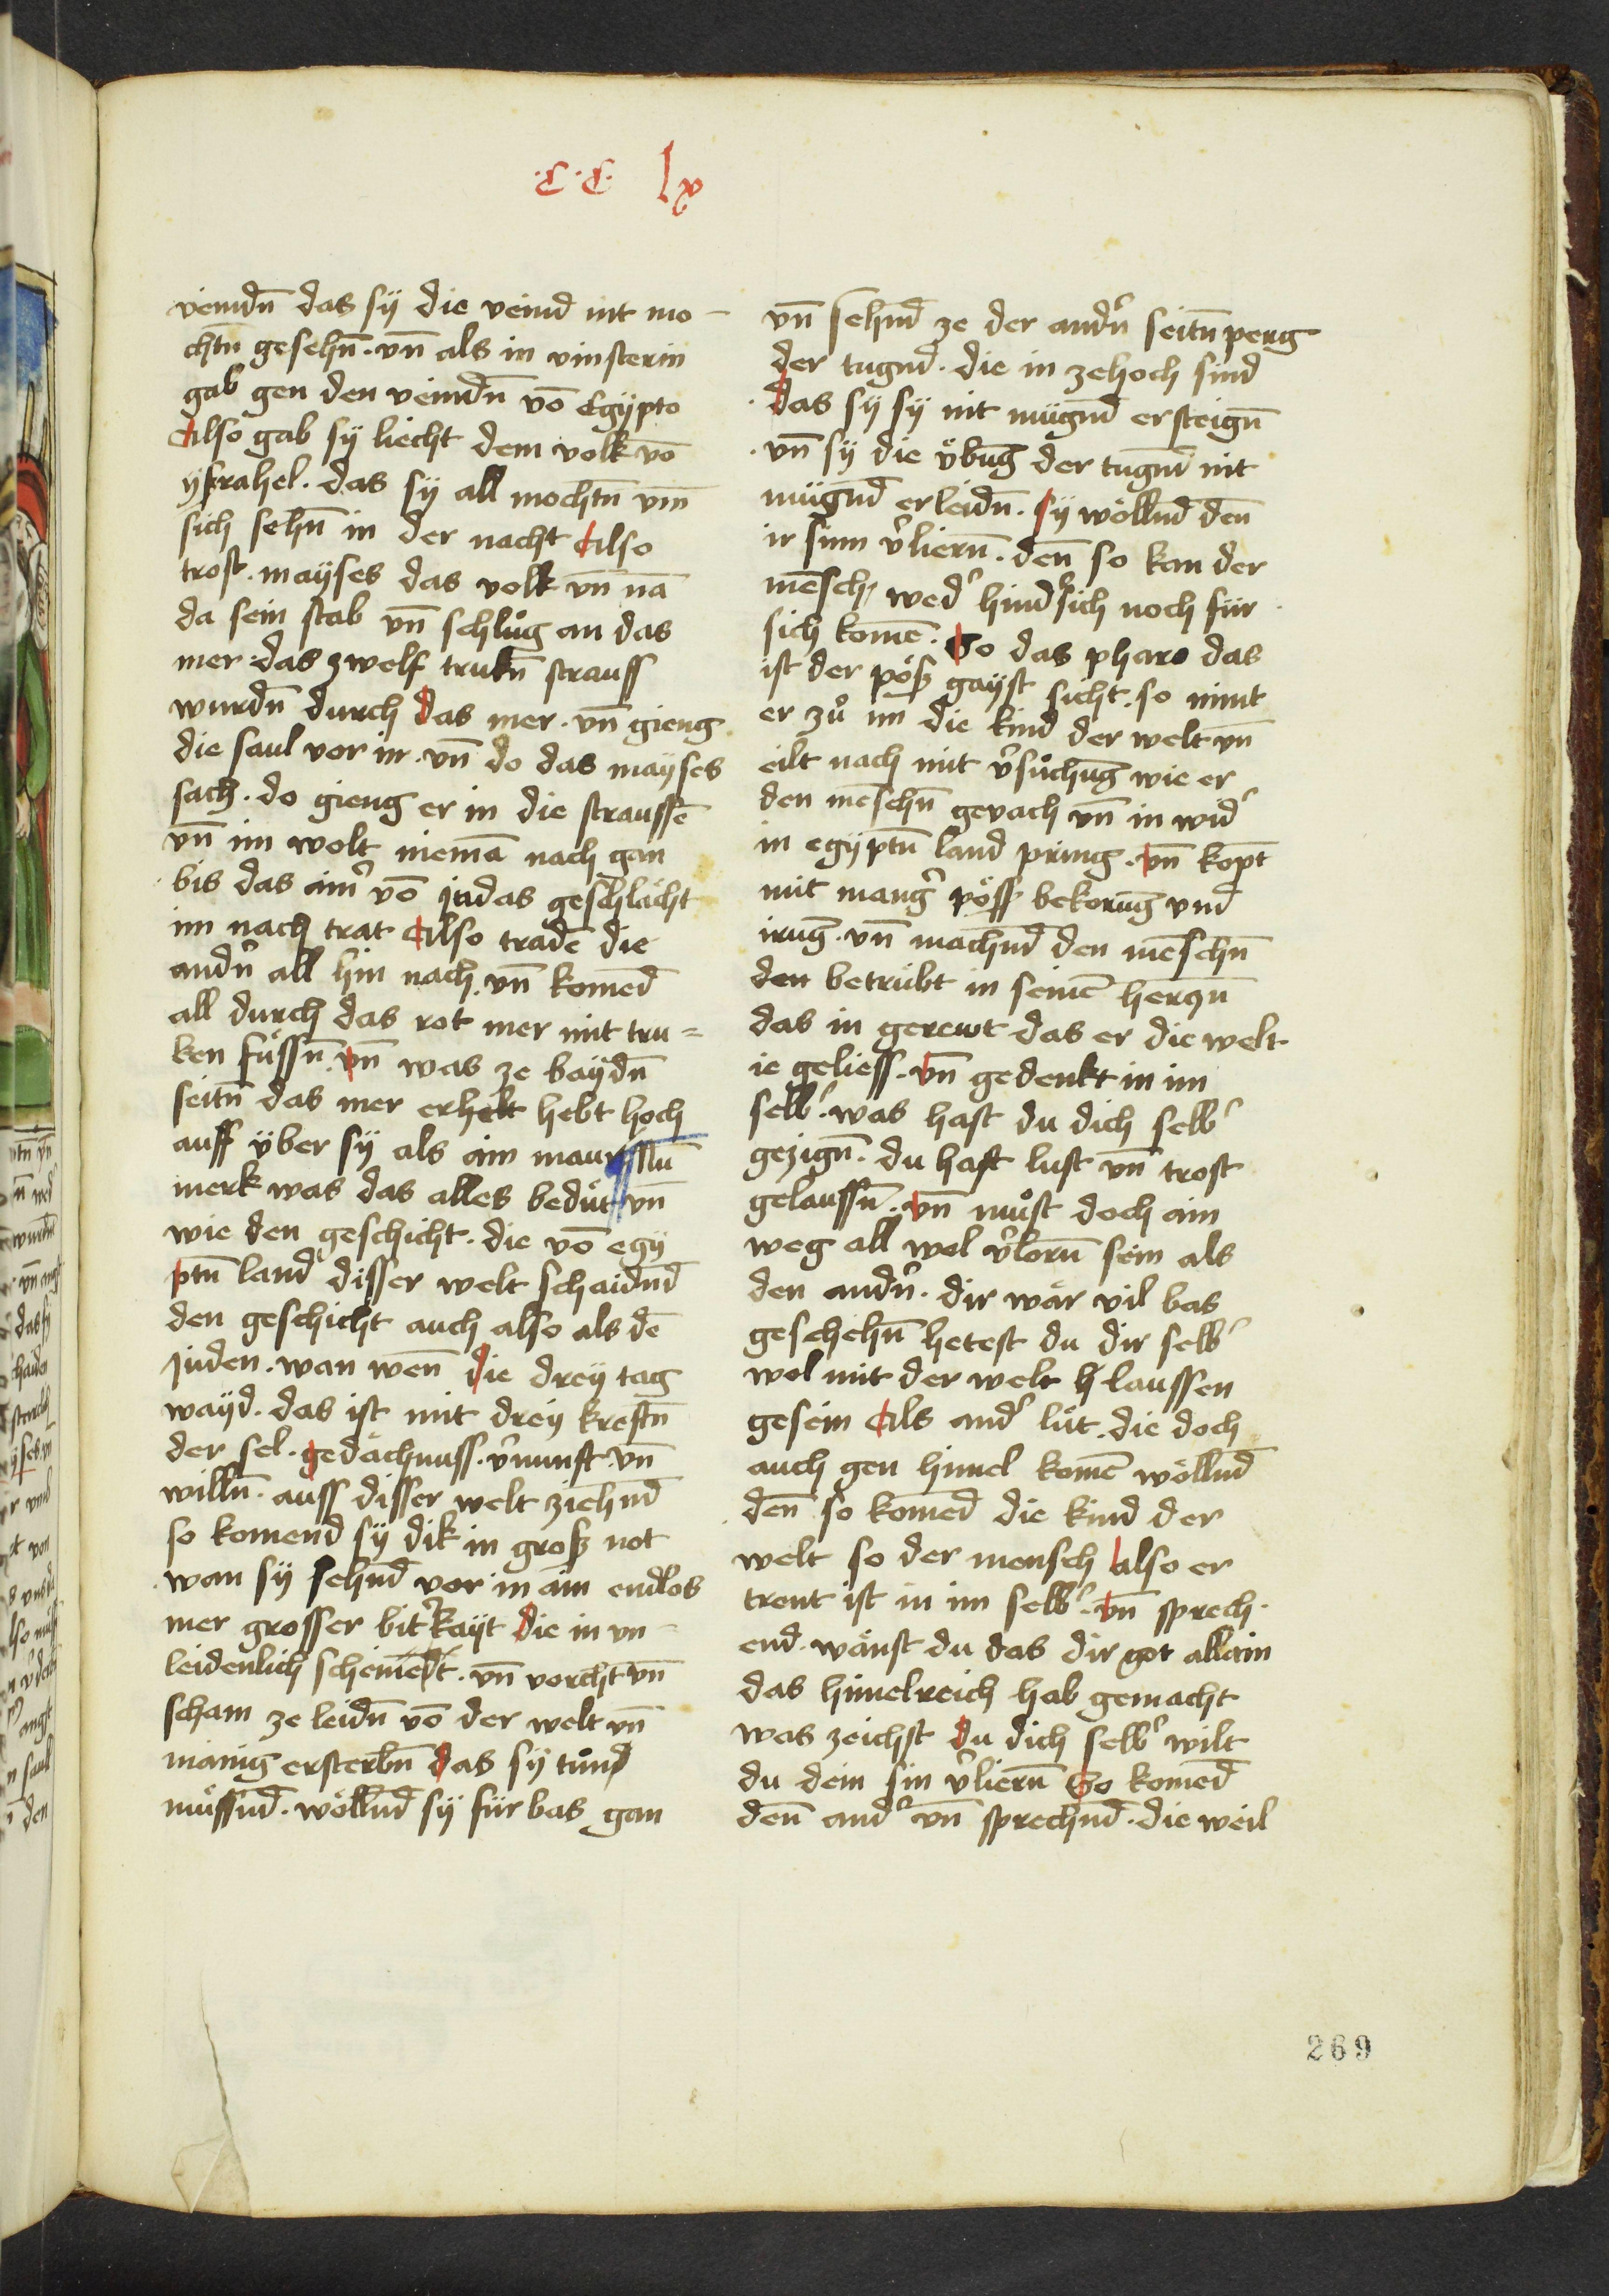 .C.C. lx
veindn̄ das sÿ die veind nit mo-
chtn̄ gesehn̄. vn̄ als in vinsterin
gab gen den veindn̄ vō Egÿpto
Also gab sÿ liecht dem volk vō
ÿsrahel. das sÿ all mochtn̄ vm̄
sich sehn̄ in der nacht Also
trost. maÿses das volk vn̄ nā
da sein stab vn̄ schlůg an das
mer das zwelf trukn̄ strauss
wurdn̄ durch das mer. vn̄ gieng
die saul vor in. vn̄ do das maÿses
sach. do gieng er in die straussē
vn̄ im wolt niemā nach gan
bis das ainr̄ vō Judas geschlächt
im nach trat Also tradē die
andn̄ all hin nach. vn̄ komēd
all durch das rot mer mit tru=
ken füssn̄. vn̄ was ze baÿdn̄
seitn̄ das mer erhebt hebt hoch
auff über sÿ als ain maur
merk was das alles bedüt vn̄
wie den geschicht. die vō egÿ
ptn̄ land disser welt schaidnd̄
den geschicht auch also als dē
Juden. wan wen̄ die dreÿ tag
waÿd. das ist mit dreÿ kreftn̄
der sel. gedächnuss. v̉nunft. vn̄
willn̄. auss disser welt ziehnd̄
so komend sÿ dik in groß not
wan sÿ sehnd̄ vor in ain endlos
mer grosser bitt̉kaÿt die in vn-
leidenlich scheinēt. vn̄ vorcht vn̄
scham ze leidn̄ vō der welt vn̄
mänig ersterbn̄ das sÿ tůnd
müssnd̄. wöllnd̄ sÿ für bas gan
vn̄ sehnd̄ ze der andn̄ seitn̄ perg
der tugnd̄. die in zehoch sind
das sÿ sÿ nit mügnd̄ ersteign̄
vn̄ sÿ die übūg der tugnd̄ nit
mügnd̄ erleidn̄. sÿ wöllnd̄ den̄
ir sinn v̉liern̄. den̄ so kan der
mēsch wed̉ hind̉sich noch für
sich komē. So das pharo das
ist der pöß gaÿst sicht. so nimt
er zů im die kind der welt vn̄
eilt nach mit v̉sůchūg wie er
den mēschn̄ gevach vn̄ in wid̉
in egÿptn̄ land pring. vn̄ kopt
mit mang̉ pöss bekorūg vnd
irūg. vn̄ machnd̄ den mēschn̄
den betrübt in seinē herczn̄
das in gerewt das er die welt
ie geliess. vn̄ gedenkt in im
selb̉. was hast du dich selb̉
gezign̄. du hast lust vn̄ trost
gelaussn̄. vn̄ můst doch ain
weg all wol v̉lorn̄ sein als
den andn̄. dir wär vil bas
geschehn̄ hetest du dir selb̉
wol mit der welt laussen
gesein Als and̉ lüt. die doch
auch gen himel komē wöllnd̄
den̄ so komēd die kind der
welt so der mensch also er
trent ist in im selb̉. vn̄ sprech.
end. wänst du das dir got allain
das himelreich hab gemacht
was zeichst du dich selb̉ wilt
du dein sin v̉liern̄ So komēd
den̄ and̉ vn̄ sprechnd̄. die weil
269